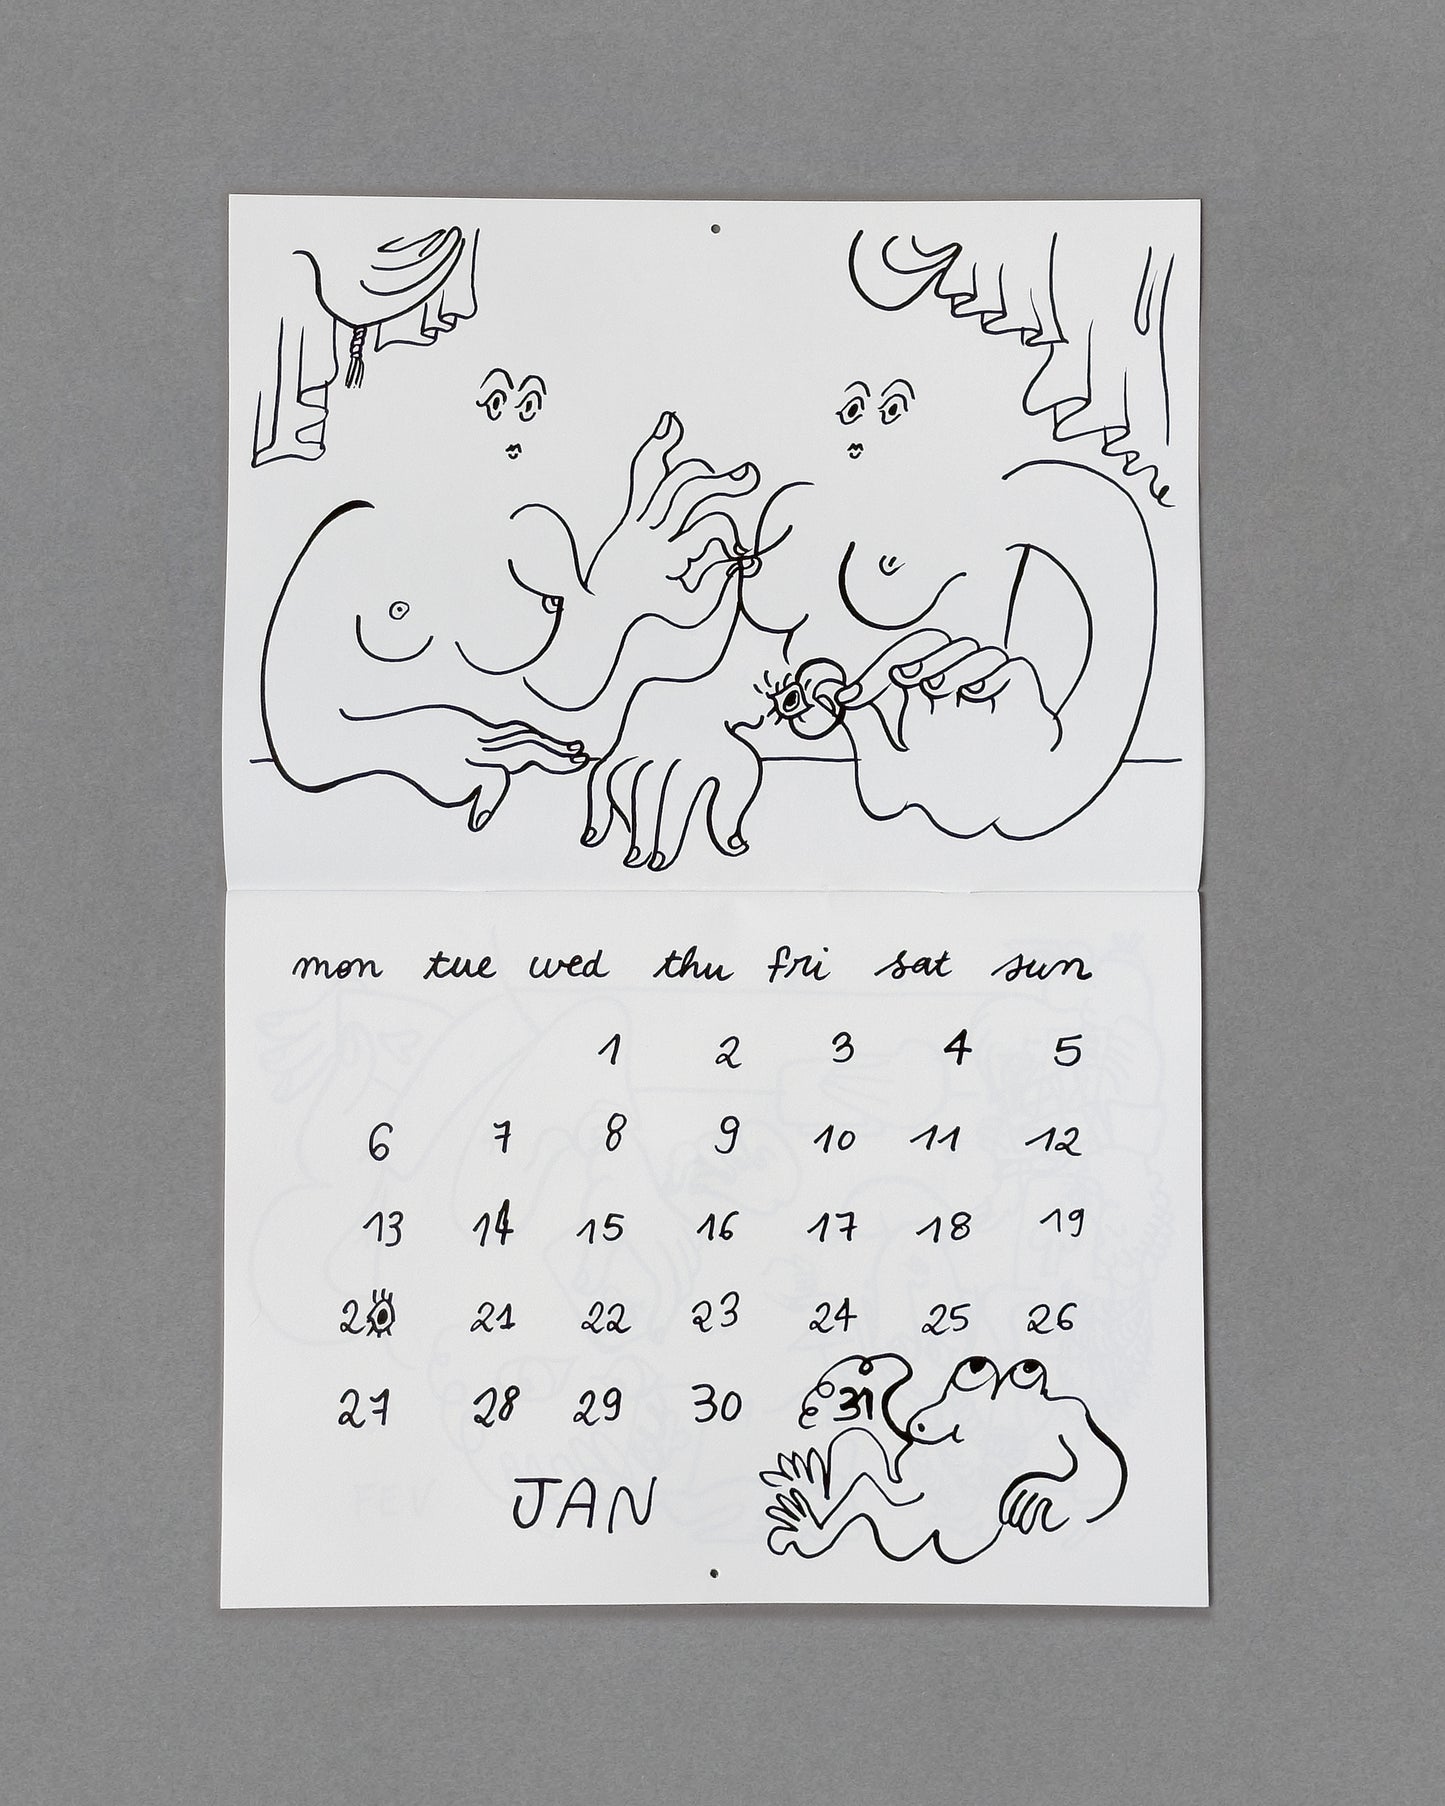 mon tue wed thu fri sat sun
1 2 3 4 5
6 7 8 9 10 11 12
13 14 15 16 17 18 19
20 21 22 23 24 25 26
27 28 29 30 31
JAN